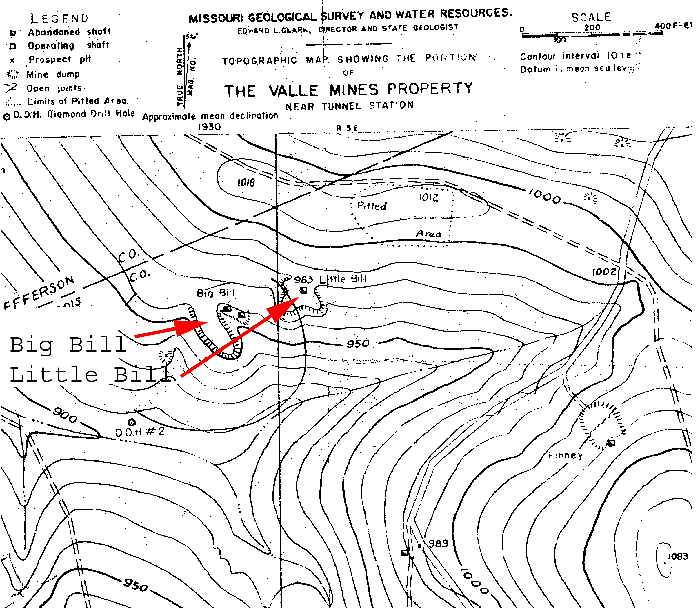 LEGEND
Abandoned shaft
Operating shaft
x Prospect pit
Mine dump
Open joints
Limits of Pitted Area
D.D.H. Diamond Drill Hole
MISSOURI GEOLOGICAL SURVEY AND WATER RESOURCES.
EDWARD L. CLARK, DIRECTOR AND STATE GEOLOGIST
TOPOGRAPHIC MAP SHOWING THE PORTION
OF
THE VALLE MINES PROPERTY
NEAR TUNNEL STATION
TRUE NORTH
MAG. NO.
Approximate mean declination
1930
SCALE
0 200 400 Feet
100
Contour interval 10 feet
Datum is mean sea level
R 5 E
1016
Pitted
1012
Area
1000
CO.
CO.
EFFERSON
1002
983 Little Bill
Big Bill
Big Bill
Little Bill
950
900
D.D.H #2
Finney
983
1083
950
1000